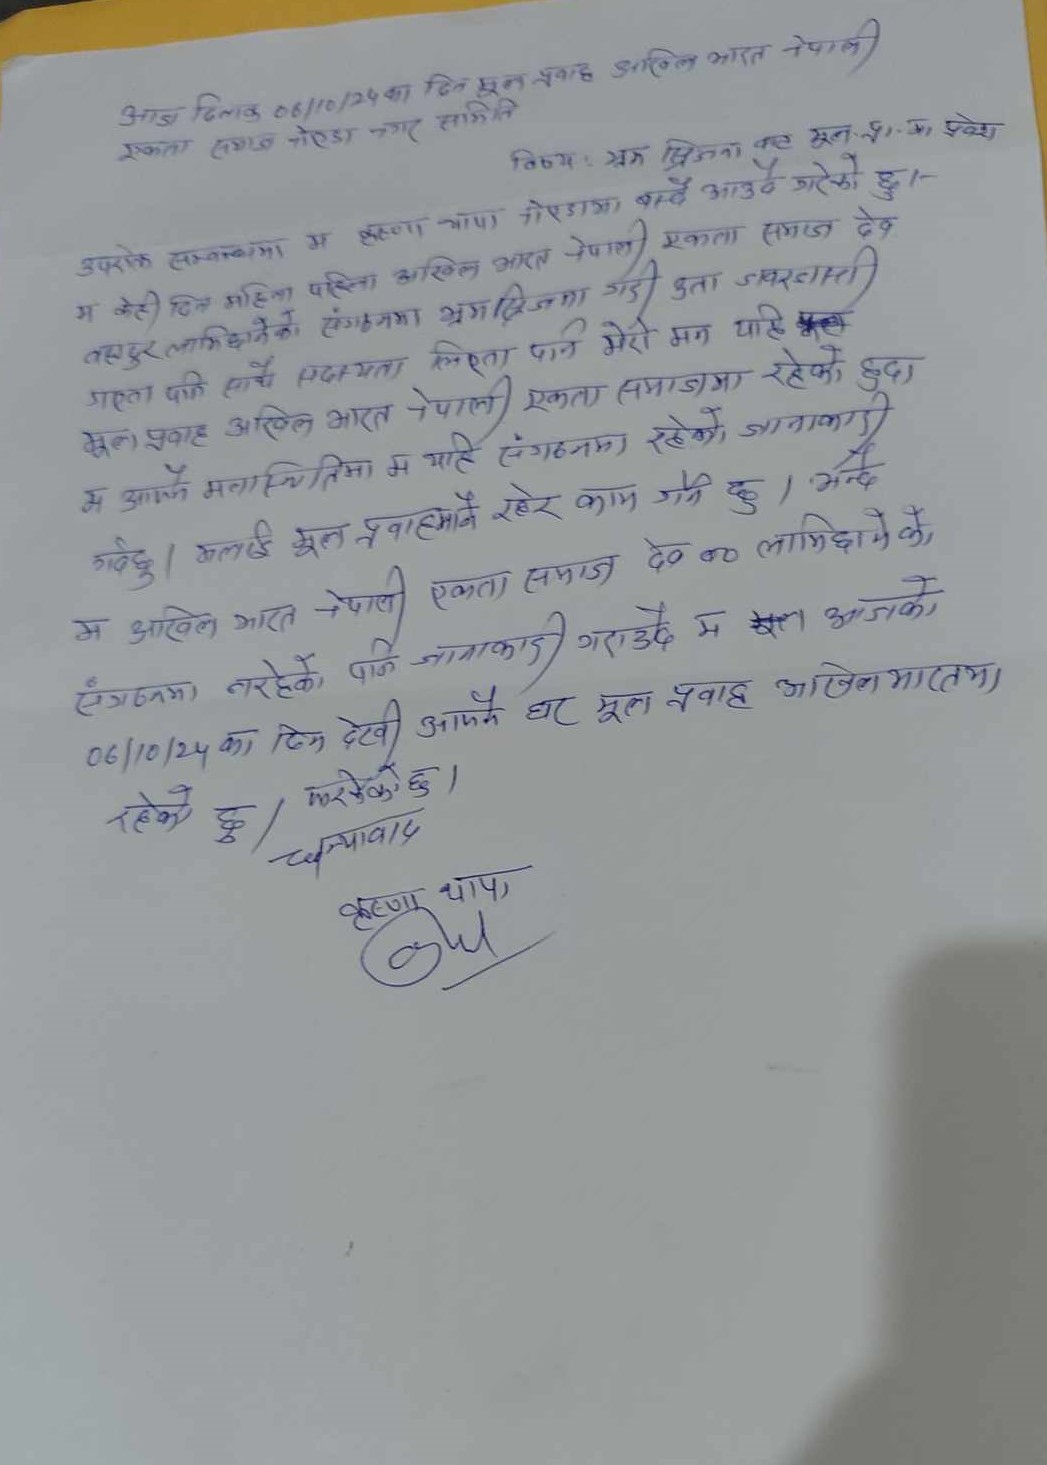 आज दिनाक 06/10/24 का दिन मूल प्रवाह अखिल भारत नेपाली
एकता समाज नोएडा नगर समिति
विषय: भ्रम सृजना बाट मूल.प्र.मा प्रवेश
उपरोक्त सम्वन्धमा म कृष्णा थापा नोएडामा बस्दै आउदै गरेको छु।-
म केही दिन महिना पहिला अखिल भारत नेपाली एकता समाज देव
बहादुर लामिछानेको संगठनमा भ्रमसृजना गरी हुता जवरजास्ती
गएता पनि साथै सदस्यता लिएता पनि मेरो मन चाहि
मूल प्रवाह अखिल भारत नेपाली एकता समाजमा रहेको हुदा
म आफ्नै मनास्थितिमा म यहि संगठनमा रहेको जानाकारी
गर्दछु। मलाई मूल प्रवाहमानै रहेर काम गर्ने छु। भन्दै
म अखिल भारत नेपाली एकता समाज देव ब० लामिछाने को
संगठनमा नरहेको पनि जानाकारी गराउदै म आजको
06/10/24 का दिन देखी आफ्नै घर मूल प्रवाह अखिल भारतमा
रहेको छु। फरकेको छु।
धन्यावाद
कृष्णा थापा